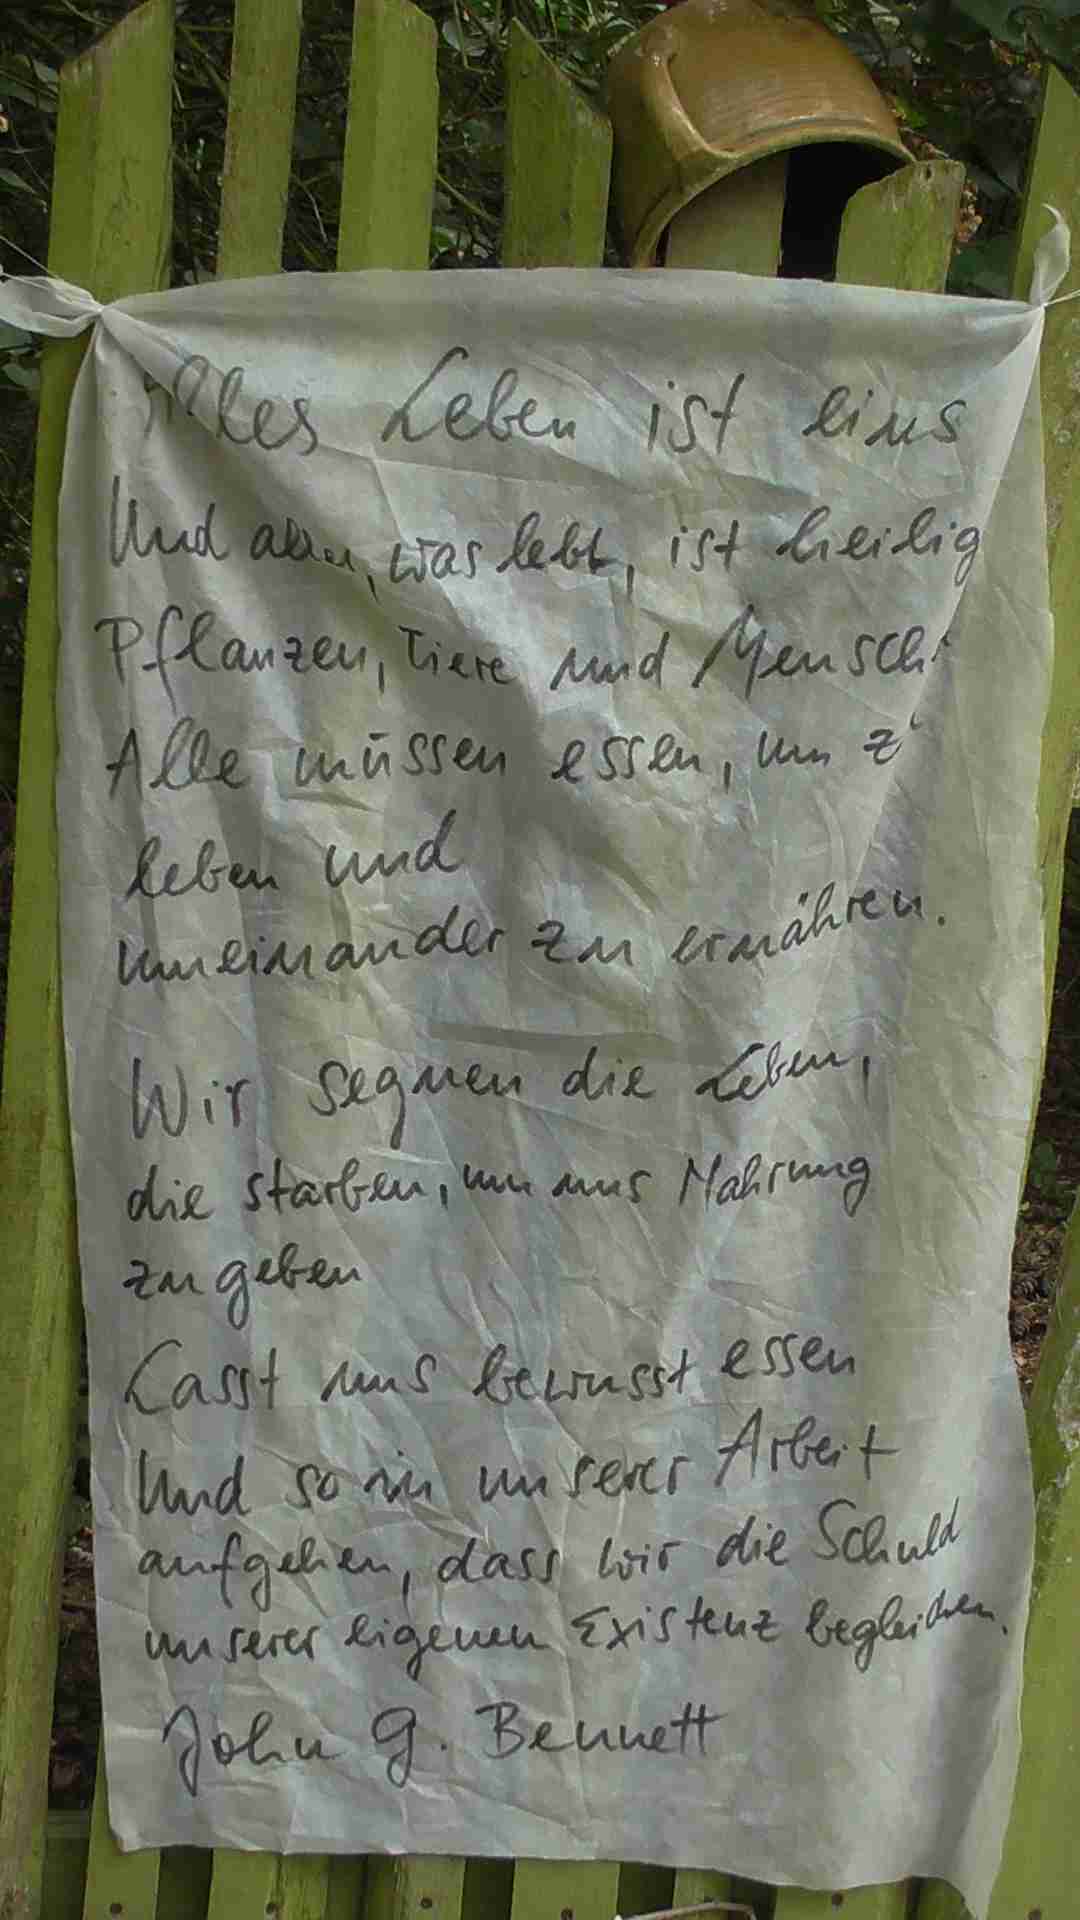 Alles Leben ist eins
Und alles, was lebt, ist heilig
Pflanzen, Tiere und Mensch
Alle müssen essen, um z
leben und
um einander zu ernähren.
Wir segnen die Leben,
die starben, um uns Nahrung
zu geben
Lasst uns bewusst essen
Und so in unserer Arbeit
aufgehen, dass wir die Schuld
unserer eigenen Existenz begleichen.
John G. Bennett